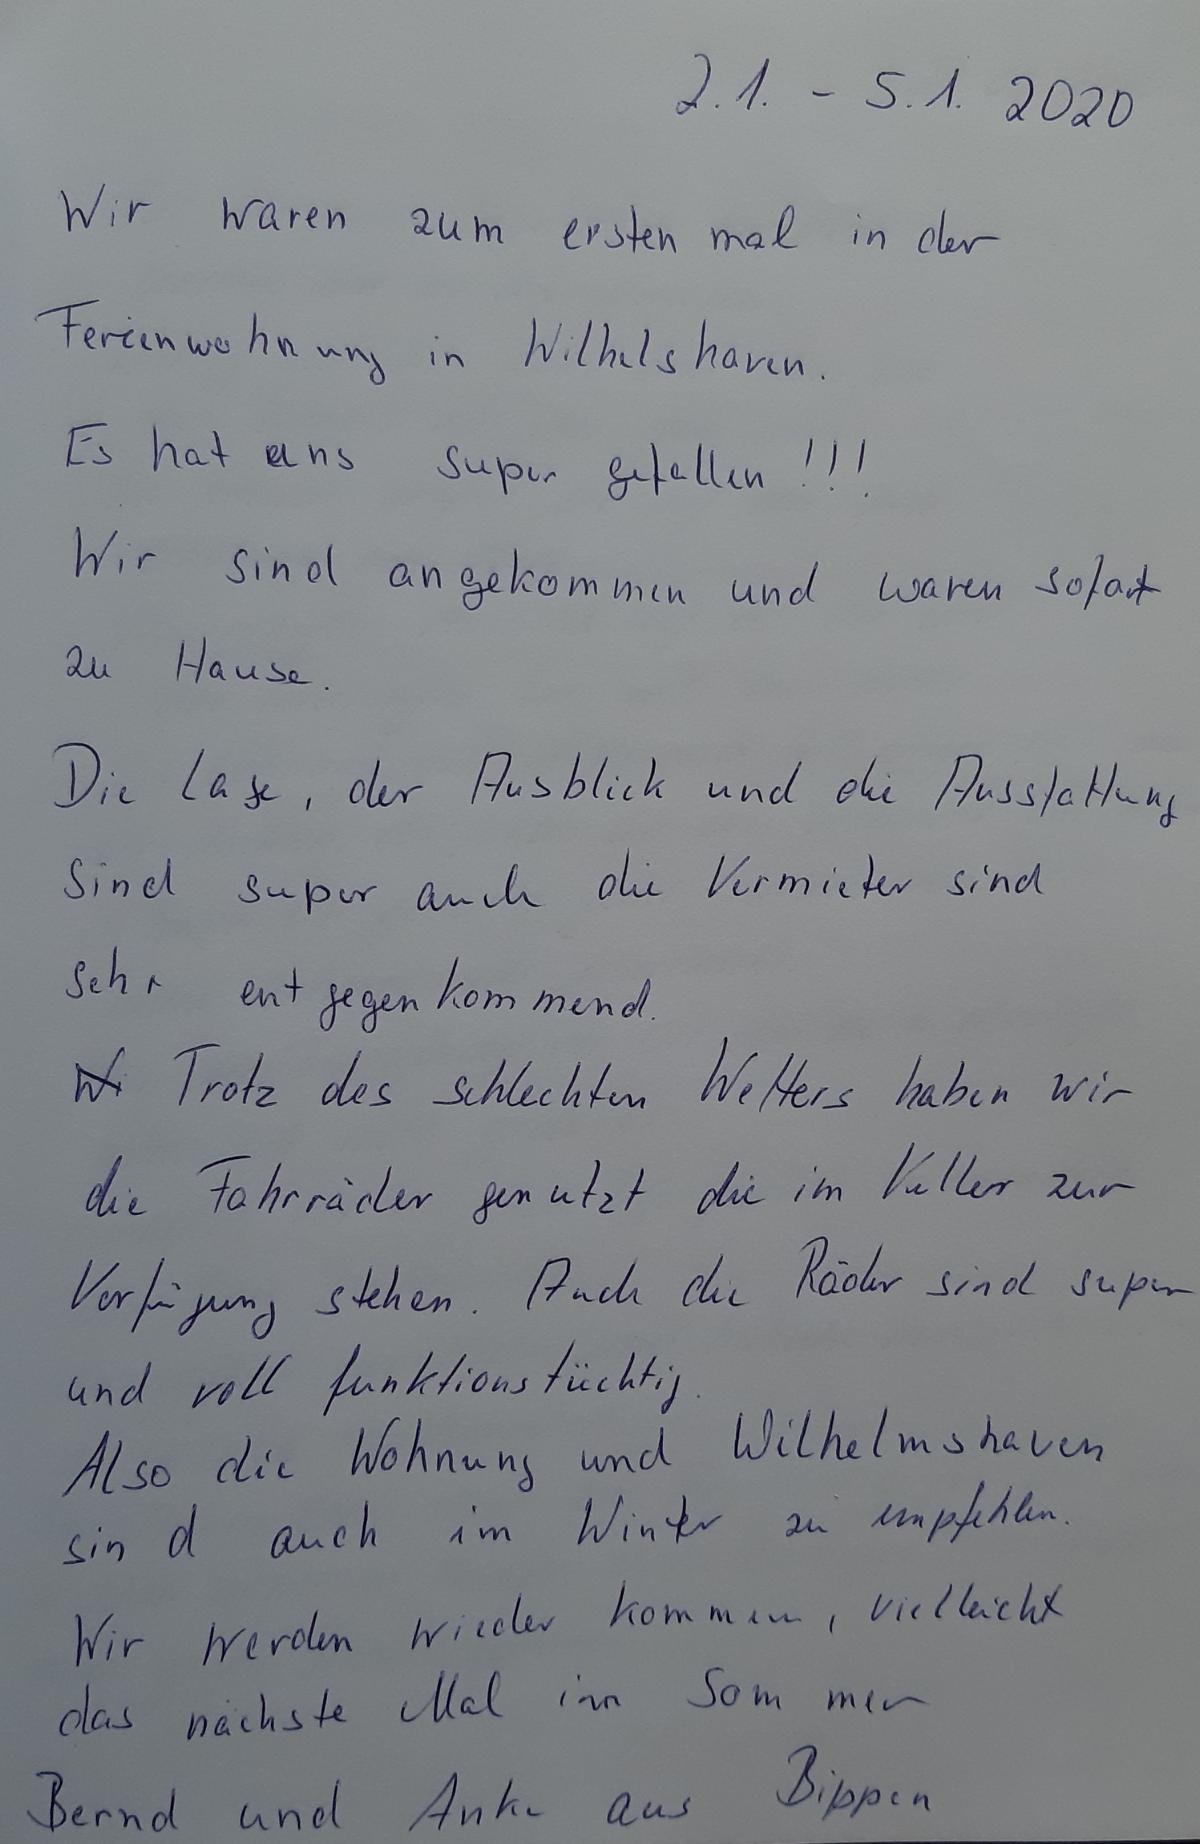 2.1. - 5.1. 2020
Wir waren zum ersten mal in der
Ferienwohnung in Wilhelshaven.
Es hat uns super gefallen!!!
Wir sind angekommen und waren sofort
zu Hause.
Die Lage, der Ausblick und die Ausstattung
sind super auch die Vermieter sind
sehr entgegenkommend.
Trotz des schlechten Wetters haben wir
die Fahrräder genutzt die im Keller zur
Verfügung stehen. Auch die Räder sind super
und voll funktionstüchtig.
Also die Wohnung und Wilhelmshaven
sind auch im Winter zu empfehlen.
Wir werden wieder kommen, vielleicht
das nächste Mal im Sommer
Bernd und Anke aus Bippen